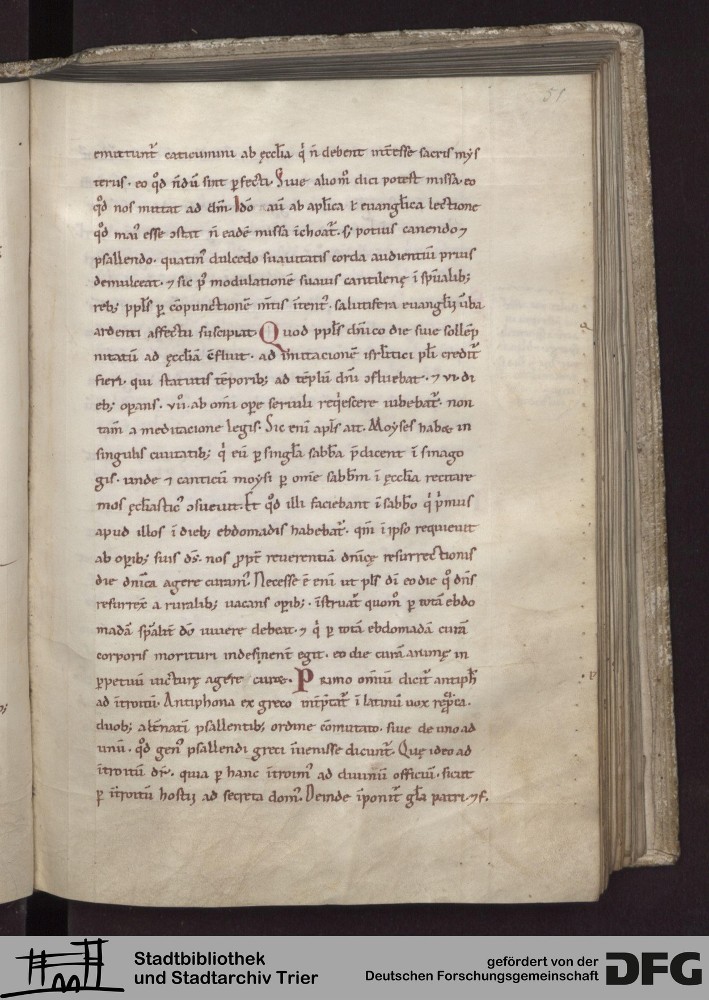 51
emittunt᷑ caticumini ab ęccl̄ia q̇ n̄ debent int᷑esse sacris mys
teriis. eo qd̄ n̄dū sint ꝑfecti. Siue aliom̊ dici potest missa. eo
qd̄ nos mittat ad dm̄. Idō au̅ ab apl̄ica & euangl̄ica lectione
qd̄ mai᷒ esse ↄstit n̄ eadē missa ichoat᷑. s; potius canendo ⁊
psallendo. quatin᷒ dulcedo suauitatis corda audientiū prius
demulceat. ⁊ sic p᷒ modulationē suauis cantilenę ī spūalib;
reb; ppl̄s ꝑ cōpunctionē m̄tis ītent᷒. salutifera euangl̄ii ūba
ardenti affectu suscipiat. Quod ppl̄s dn̄ico die siue sollēp
nitatū ad ęccl̄iā ↄfluit. ad imitacionē isrl̄itici pl̄i credit᷑
fieri. qui statutis tēporib; ad tēplū dn̄i ↄfluebat. ⁊ vi. di
eb; oꝑans. vii̊. ab om̄i oꝑe seruili reqi̇escere iubebat᷑. non
tam̄ a meditacione legis. Sic eni̅ apl̄s ait. Moyses habet in
singulis ciuitatib; q̇ eū ꝑ singl̄a sabb̄a p̄dicent ī sinago
gis. unde ⁊ canticū moysi ꝑ om̄e sabbm̄ ī ęccl̄ia recitare
mos ęccl̄iastic᷒ ↄsueuit. Et qd̄ illi faciebant ī sabb̄o q̇ ṗmus
apud illos ī dieb; ebdomadis habebat᷑. qm̄ ī ipso requieuit
ab oꝑib; suis ds̄. nos ꝓpt᷑ reuerentiā dn̄icę resurrectionis
die dn̄ica agere curam᷒. Necesse ē eni̅ ut pl̄s dī eo die q̊ dn̄s
resurrex̄ a ruralib; uacans oꝑib;. īstruat᷑ quom̊ ꝑ totā ebdo
madā spūalit᷑ dō uiuere debeat. ⁊ q̇ ꝑ totā ebdomadā curā
corporis morituri indesinent᷑ egit. eo die curā animę in
ꝑpetuū uicturę agere curet. Primo omniū dicit᷑ antiph̄
ad itroitū. Antiphona ex greco int᷑p̄tat᷑ ī latinū uox rep̊ca.
duob; alt᷑natī psallentib; ordine cōmutato. siue de uno ad
unū. qd̄ gen᷒ psallendi greci īuenisse dicunt᷑. Quę ideo ad
ītroitū dr̄. quia ꝑ hanc itroim᷒ ad diuinū officiū. sicut
ꝑ itroitū hostii ad secreta dom᷒. Deinde īponit᷑ gl̄a patri ⁊ f.
Stadtbibliothek
und Stadtarchiv Trier
gefördert von der
Deutschen Forschungsgemeinschaft
DFG